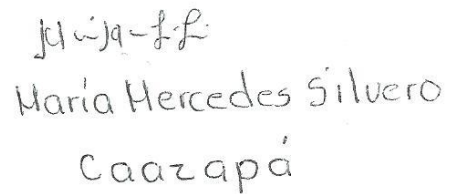 María Mercedes Silvero
Caazapá